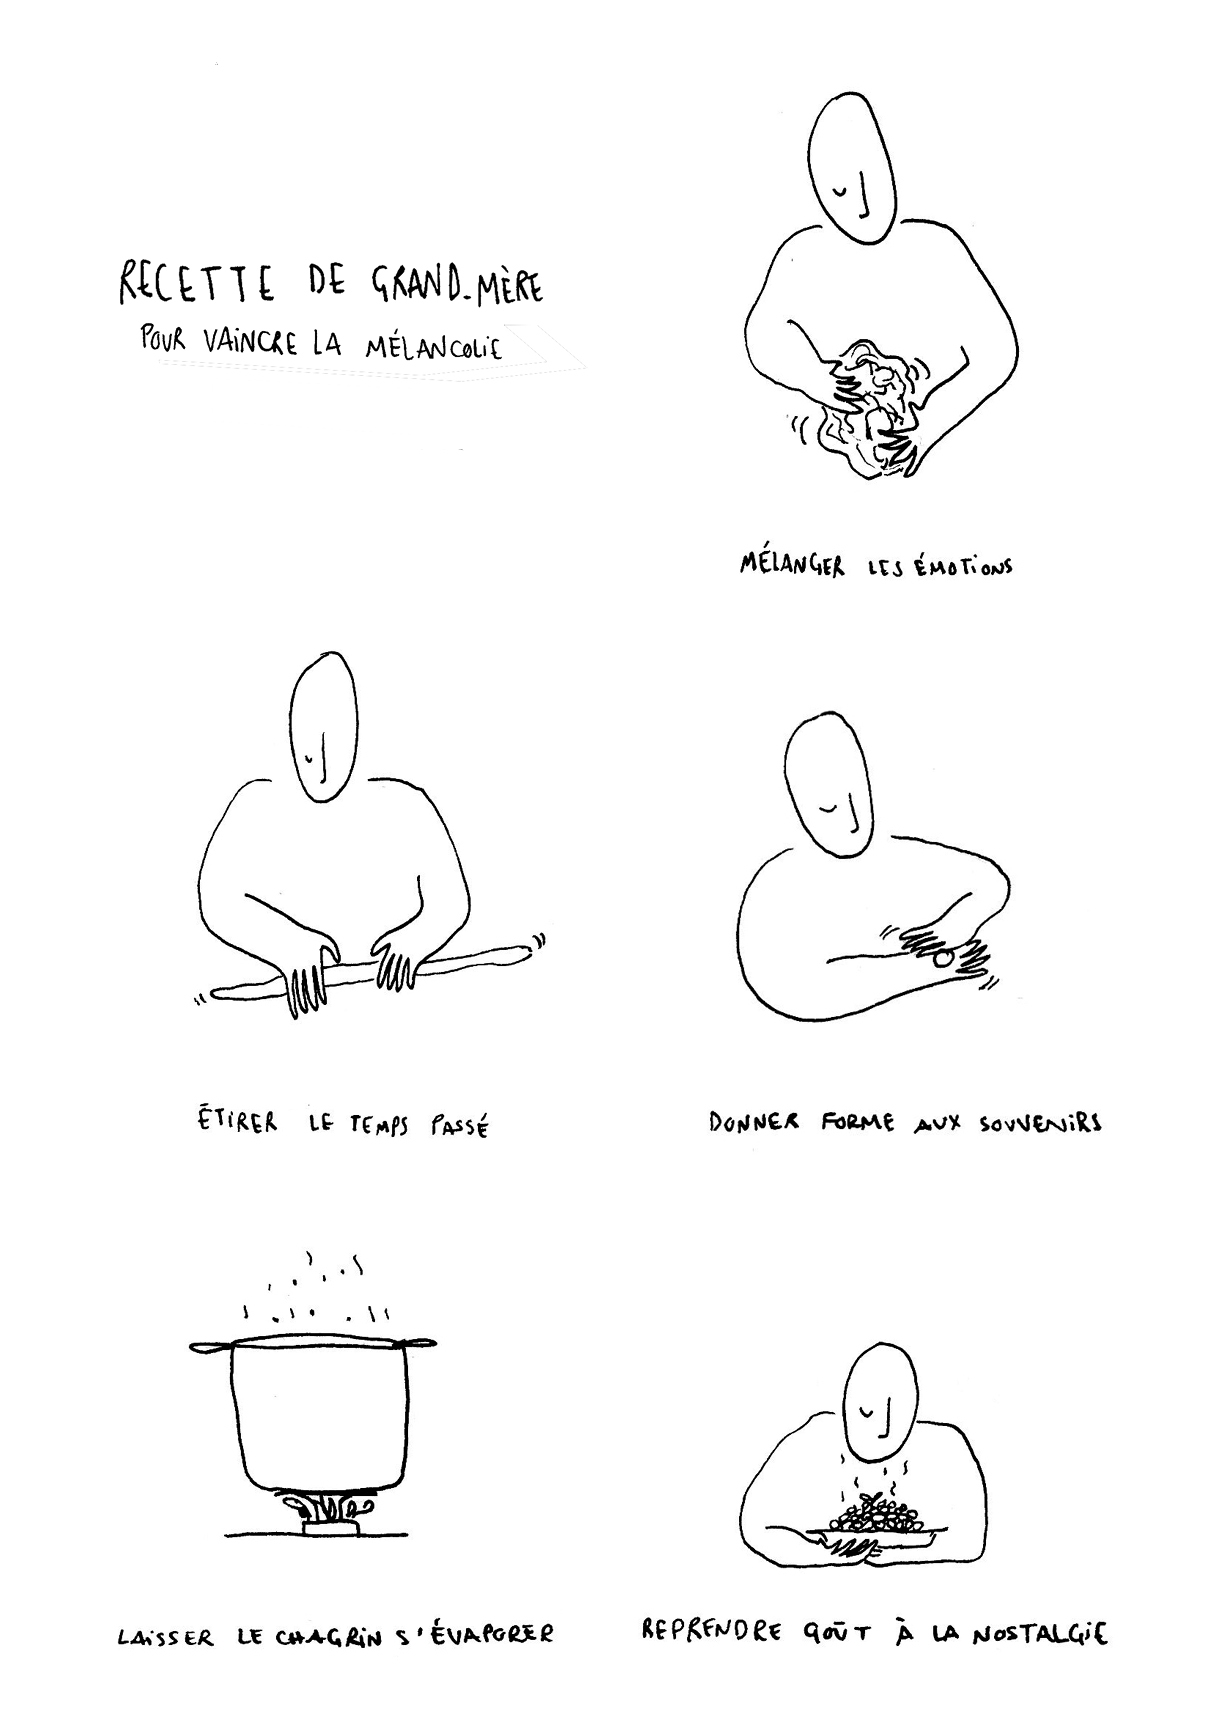 RECETTE DE GRAND-MÈRE
POUR VAiNCRE LA MÉLANCOLiE
MÉLANGER LES ÉMOTiONS
ÉTiRER LE TEMPS PASSÉ
DONNER FORME AUX SOUVENiRS
LAiSSER LE CHAGRiN S'ÉVAPORER
REPRENDRE GOÛT À LA NOSTALGiE